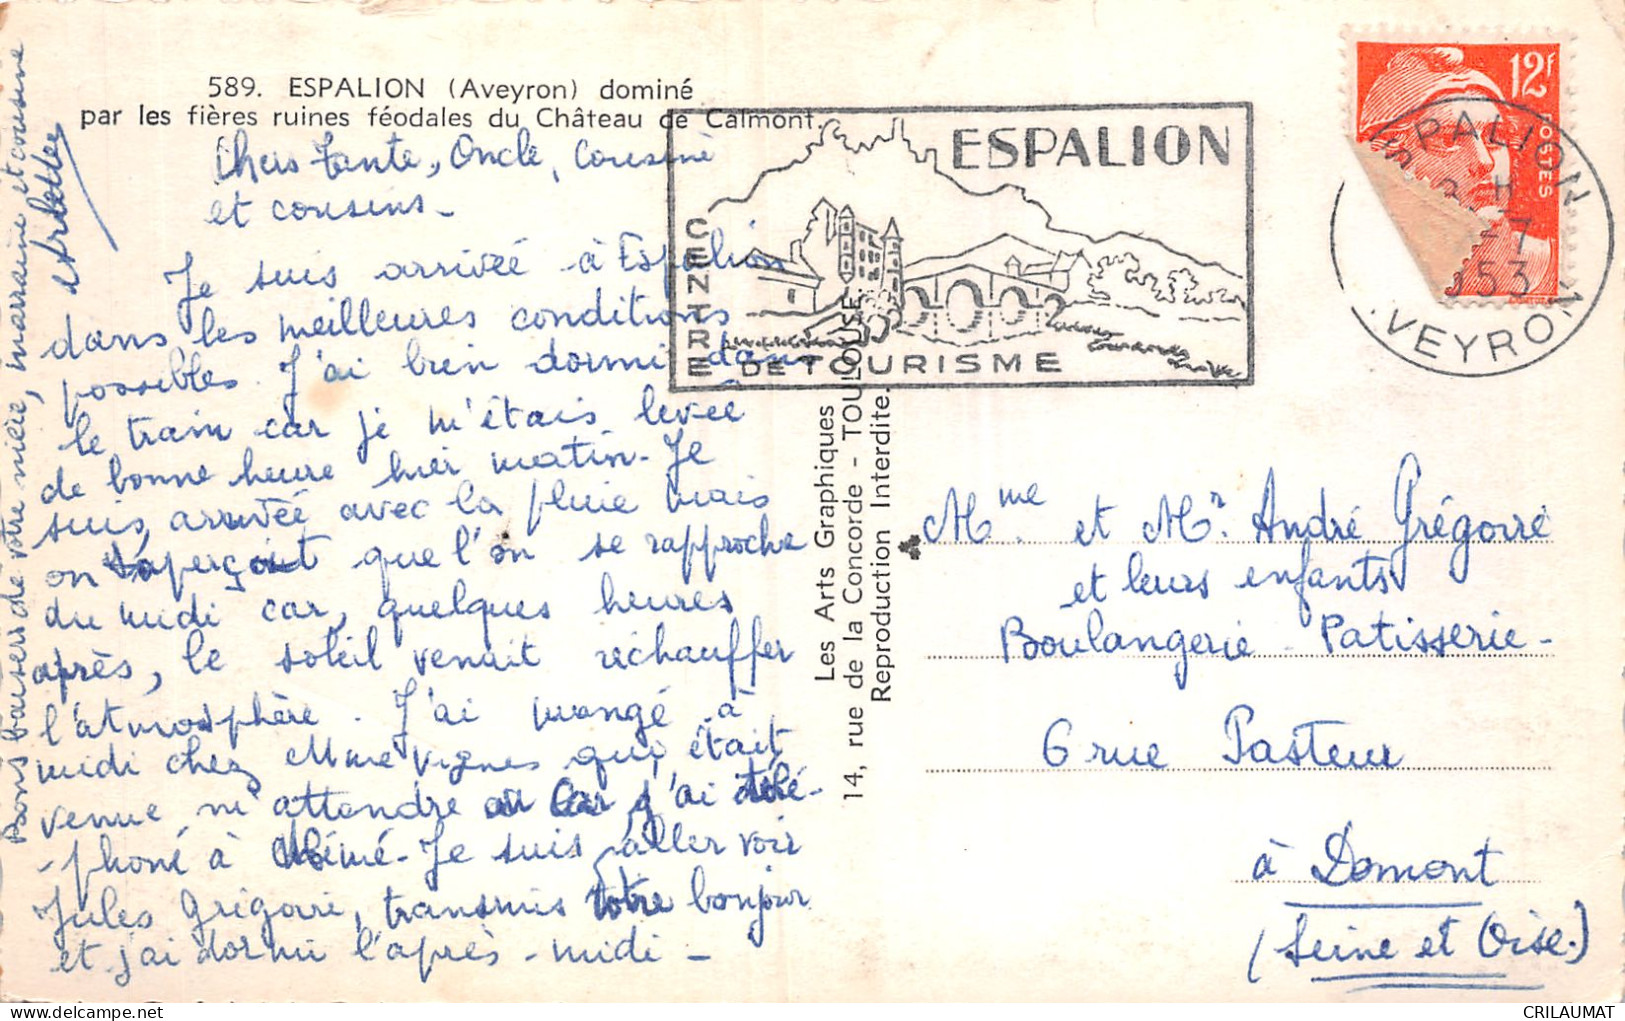 589. ESPALION (Aveyron) dominé
par les fières ruines féodales du Château de Calmont.
Chers Tante, Oncle, Cousine
et cousins_
Je suis arrivée à Espalion
dans les meilleures conditions
possibles. J'ai bien dormi dans
le train car je m'étais levée
de bonne heure hier matin. Je
suis, arrivée avec la pluie mais
on s'aperçoit que l'on se rapproche
du midi car, quelques heures
après, le soleil venait réchauffer
l'atmosphère. J'ai mangé à
midi chez Mme Vignes qui était
venue m'attendre au car j'ai télé-
-phoné à Mémé. Je suis aller voir
Jules Grégoire, transmis votre bonjour
et j'ai dormi l'après-midi_
Bons baisers de votre nièce, marraine et cousine
Arlette
ESPALION
CENTRE
DE TOURISME
12F
POSTES
ESPALION
H
-7
1953
AVEYRON
Les Arts Graphiques
14, rue de la Concorde - TOULOUSE.
Reproduction Interdite.
Mme et Mr. André Grégoire
et leurs enfants
Boulangerie - Patisserie -
6 rue Pasteur
à Domont
(Seine et Oise.)
CRILAUMAT